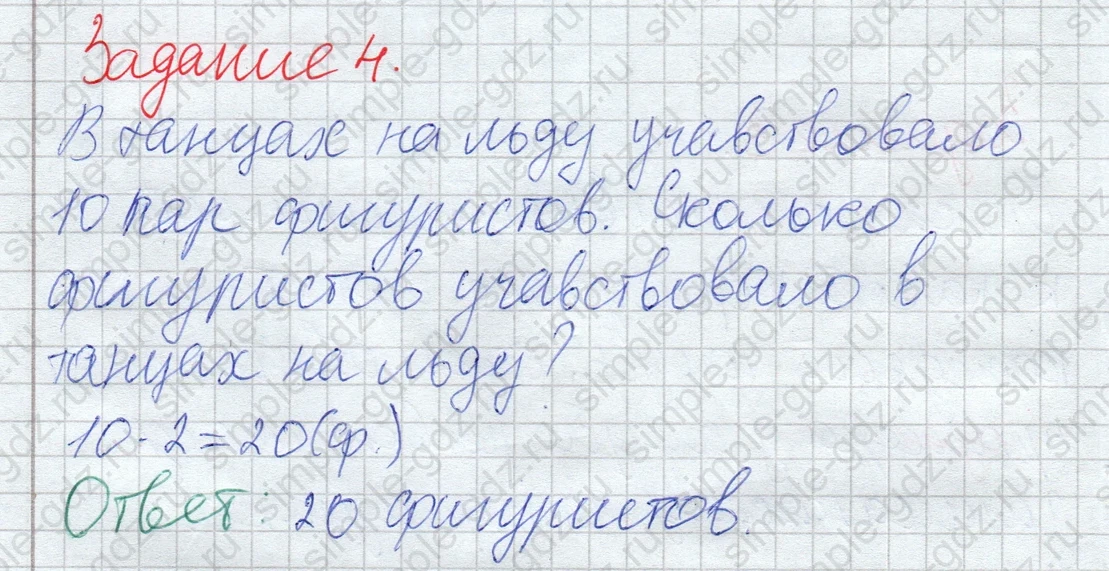 Задание 4.
В танцах на льду учавствовало
10 пар фигуристов. Сколько
фигуристов учавствовало в
танцах на льду?
10 · 2 = 20 (ф.)
Ответ: 20 фигуристов.